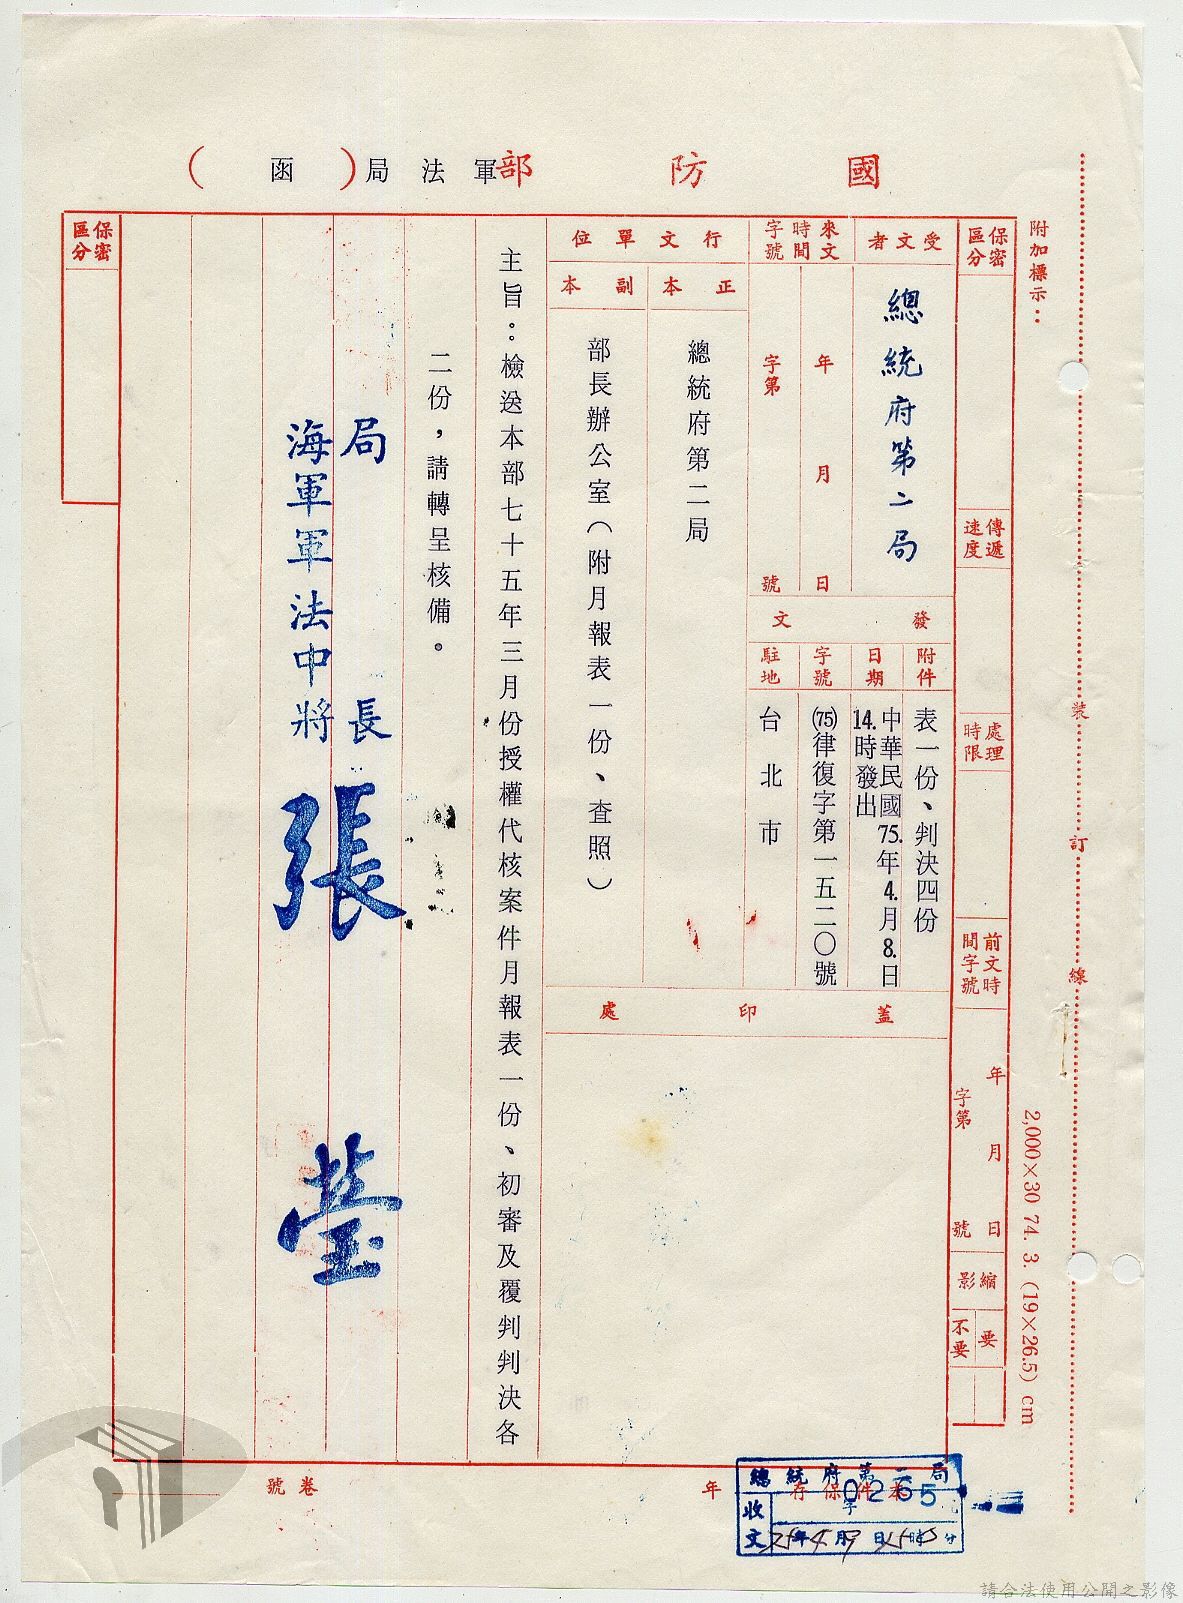 國防部軍法局(函)
附加標示：
保密區分
傳遞速度
處理時限
前文時間字號
年月日
字第號
縮影
要
不要
受文者
總統府第二局
來文時間字號
年月日
字第號
發文
附件
表一份、判決四份
日期
中華民國75.年4.月8.日
14.時發出
字號
(75)律復字第一五二〇號
駐地
台北市
行文單位
正本
總統府第二局
副本
部長辦公室（附月報表一份、查照）
蓋印處
主旨。檢送本部七十五年三月份授權代核案件月報表一份、初審及覆判判決各
二份，請轉呈核備。
局長
海軍軍法中將
張
保密區分
裝訂線
2,000×30 74. 3. (19×26.5) cm
本件保存年
卷號
總統府第二局
收文
0265
75年4月9日15時5分
請合法使用公開之影像